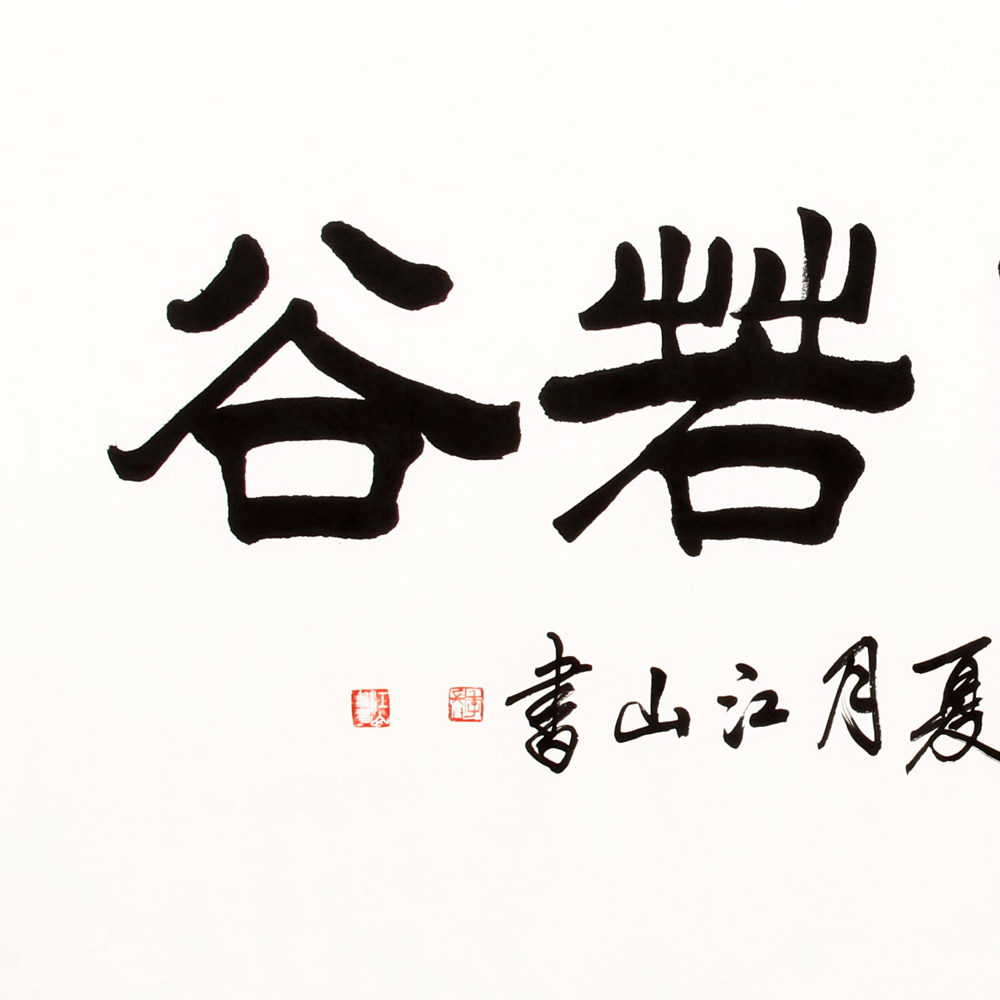 若谷
夏月江山書